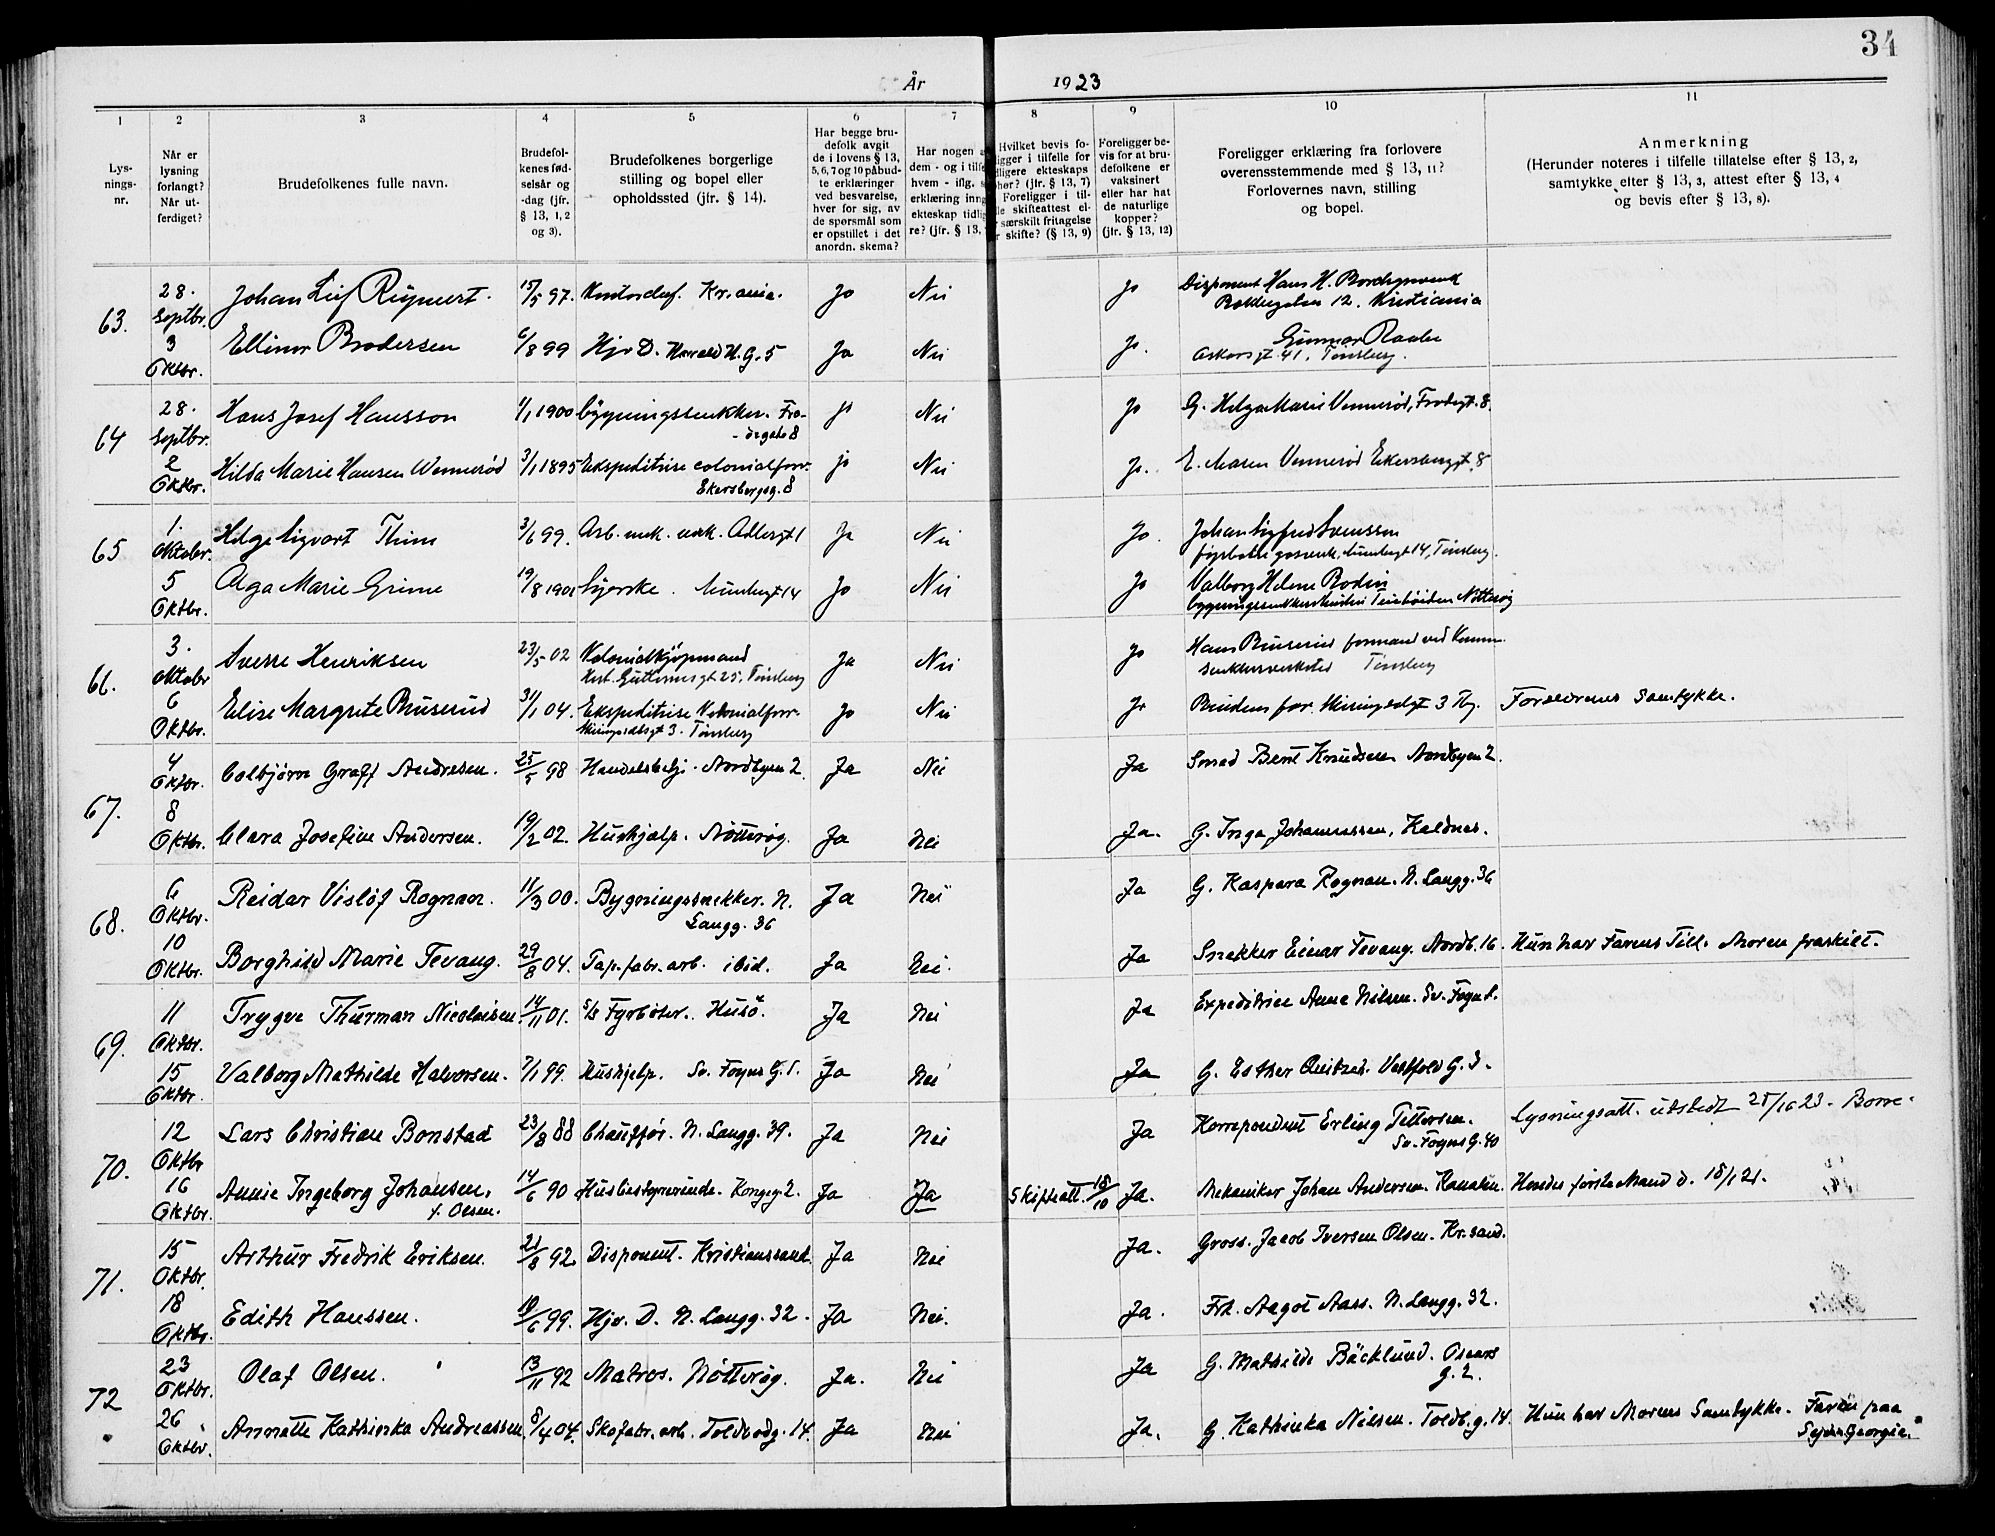 34
År 1923
1 2 3 4 5 6 7 8 9 10 11
Lys-
nings-
nr.
Når er
lysning
forlangt?
Når ut-
ferdiget?
Brudefolkenes fulle navn.
Brudefol-
kenes fød-
selsår og
-dag (jfr.
§ 13, 1, 2
og 3).
Brudefolkenes borgerlige
stilling og bopel eller
opholdssted (jfr. § 14).
Har begge bru-
defolk avgit
de i lovens § 13,
5, 6, 7 og 10 påbud-
te erklæringer
ved besvarelse,
hver for sig, av
de spørsmål som
er opstillet i det
anordn. skema?
Har nogen a
dem - og i tilfe
hvem - iflg. s
erklæring inng
ekteskap tidlig
re? (jfr. § 13,
Hvilket bevis fo-
ligger i tilfelle for
dligere ekteskaps
phør? (jfr. § 13, 7)
Foreligger i til-
le skifteattest el-
r særskilt fritagelse
r skifte? (§ 13, 9)
Foreligger be-
vis for at bru-
defolkene er
vaksinert
eller har hat
de naturlige
kopper?
(jfr. § 13, 12)
Foreligger erklæring fra forlovere
overensstemmende med § 13, 11?
Forlovernes navn, stilling
og bopel.
Anmerkning
(Herunder noteres i tilfelle tillatelse efter § 13, 2,
samtykke efter § 13, 3, attest efter § 13, 4
og bevis efter § 13, 8).
63. 28. Septbr. Johan Leif 15/5 97. Kr.ania. Jo Nei Jo Disponent Hans H.
12. Kristiania
3 Oktbr. Ellinor Brodersen 6/8 99 Hjv D. Harald H. G. 5 Ja Nei Jo. Gunnar Raabe
41, Tønsberg.
64 28. Septbr. Hans Josef Hansson 1/1 1900 bygningssnekker. Fro-
-degate 8 jo Nei Jo G. Helga Marie Vennerød, Frodegt. 8.
2 Oktbr. Hilda Marie Hansen Wennerød 3/1 1895 Ekspeditrise colonialforr.
Ekersbergsg. 8 jo Nei Jo. E. Maren Vennerød Ekersbergt. 8
65 1. Oktober. Helge Sigvart Thim 3/6 99. Arb. mek. verk. 1 Ja Nei Jo. Johan Sigfred Svensson
14, Tønsberg.
5 Oktbr. Olga Marie Grime 19/8 1901 Syerske. 14 Jo Nei Jo Valborg Helene Bodin
Nøtterøy
66. 3. Oktober Sverre Henriksen 23/5 02 Kolonialkjøpmand
25, Tønsberg Ja Nei Jo Hans Buuserud formand ved
Tønsberg
6 Oktbr. Elise Margrete Buuserud 31/1 04. Ekspeditrise Kolonialforr.
3. Tønsberg Jo Nei Jo Brudens far. 3 Tbg. Foreldrenes samtykke.
67. 4 Oktbr. Colbjørn Graff Andresen. 25/5 98 Handelsbetj. Nordbyen 2. Ja Nei Ja Smed Bent Knudsen Nordbyen 2.
8 Oktbr. Clara Josefine Andersen. 19/2 02. Hushjælp. Nøtterøy. Ja Nei Ja. G. Inga Johannessen, Kaldnes.
68. 6 Oktbr. Reidar Visløf Rognan. 11/3 00. Bygningssnekker. N.
Langg. 36 Ja Nei Ja G. Kaspara Rognan. N. Langg. 36
10 Oktbr. Borghild Marie Tevang. 29/8 04. Tap. fabr. arb. ibid. Ja Nei. Ja Snekker Einar Tevang. Nordb. 16. Hun har Farens Till. Moren fraskilt.
69. 11 Oktbr. Trygve Thurman Nicolaisen. 14/11 01. S/s Fyrbøter. Husø. Ja Nei Ja Expeditrice Anne Nilsen. Sv. Foyns
15 Oktbr. Valborg Mathilde Halvorsen. 7/1 99. Hushjelp. Sv. Foyns G. 1. Ja Nei Ja G. Esther Quitzch. Vestfold G. 3.
70. 12 Oktbr Lars Christian Bonstad 23/8 88 Chauffør. N. Langg. 39. Ja Nei Ja Korrepondent Erling Pettersen.
Sv. Foyns G. 40 Lysningsatt. utstedt 25/10 23. Borre.
16 Oktbr. Annie Ingeborg Johansen,
f. Olsen. 14/6 90 Husbestyrerinde. Kongeg. 2. Ja Ja Skifteatt. 18/10 Ja. Mekaniker Johan Andersen. Kanalen. Hendes første Mand d. 18/1 21.
71. 15 Oktbr. Arthur Fredrik Eriksen. 21/8 92. Disponent. Kristianssand Ja Nei Ja. Gross. Jacob Iversen Olsen. Kr.sand.
18 Oktbr. Edith Hanssen. 10/6 99. Hjv. D. N. Langg. 32. Ja Nei. Ja. Frk. Aagot Aass. N. Langg. 32.
72 23 Oktbr. Olaf Olsen. 13/11 92 Matros. Nøtterøy. Ja. Nei Ja G. Mathilde Bäcklund. Oscars
G. 2.
26 Oktbr. Annette Kathinka Andreassen. 8/4 04. Skofabr. arb. Toldbodg. 14. Ja Nei Ja. G. Kathinka Nilsen. Toldb. g. 14. Hun har Morens Samtykke. Faren paa
Syd Georgia.